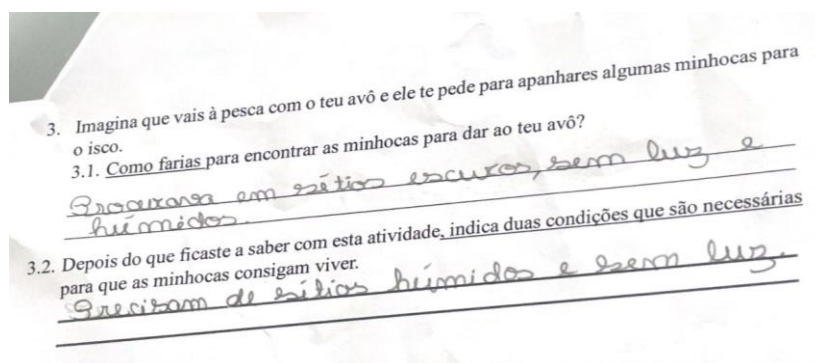 3. Imagina que vais à pesca com o teu avô e ele te pede para apanhares algumas minhocas para
o isco.
3.1. Como farias para encontrar as minhocas para dar ao teu avô?
Procurava em sítios escuros, sem luz e
húmidos.
3.2. Depois do que ficaste a saber com esta atividade, indica duas condições que são necessárias
para que as minhocas consigam viver.
Precisam de sítios húmidos e sem luz.